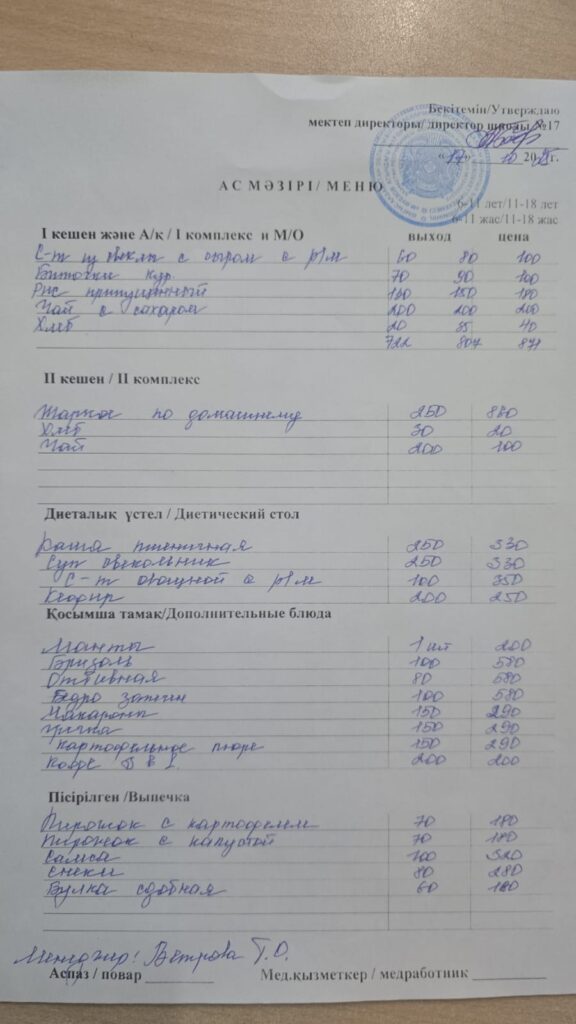 Бекітемін/Утверждаю
мектеп директоры/ директор школы №17
«17» 10 20 г.
АС МӘЗІРІ/ МЕНЮ
6-11 лет/11-18 лет
6-11 жас/11-18 жас
І кешен және А/қ / І комплекс и М/О выход цена
С-т из свеклы с сыром с р/м 60 80 100
Биточки кур. 70 90
Рис припущенный 150
Чай с сахаром 200 200 200
Хлеб 20 35 40
722 807 871
ІІ кешен / ІІ комплекс
Жаркое по домашнему 250
Хлеб 30 20
Чай 200 100
Диеталық үстел / Диетический стол
Каша пшеничная 250 330
Суп свекольник 250 330
С-т овощной с р/м 100 350
Кефир 200 250
Қосымша тамақ/Дополнительные блюда
Манты 1 шт 200
Бризоль 100 580
Отбивная 80 580
Бедро запечн 100 580
Макароны 150 290
Гречка 150 290
картофельное пюре 150 290
Кофе 200 200
Пісірілген /Выпечка
Пирожок с картофелем 70 180
Пирожок с капустой 70 180
Самса 100 320
Снеки 80 280
Булка сдобная 60 180
Менеджер: Ветрова Т.О.
Аспаз / повар Мед.қызметкер / медработник